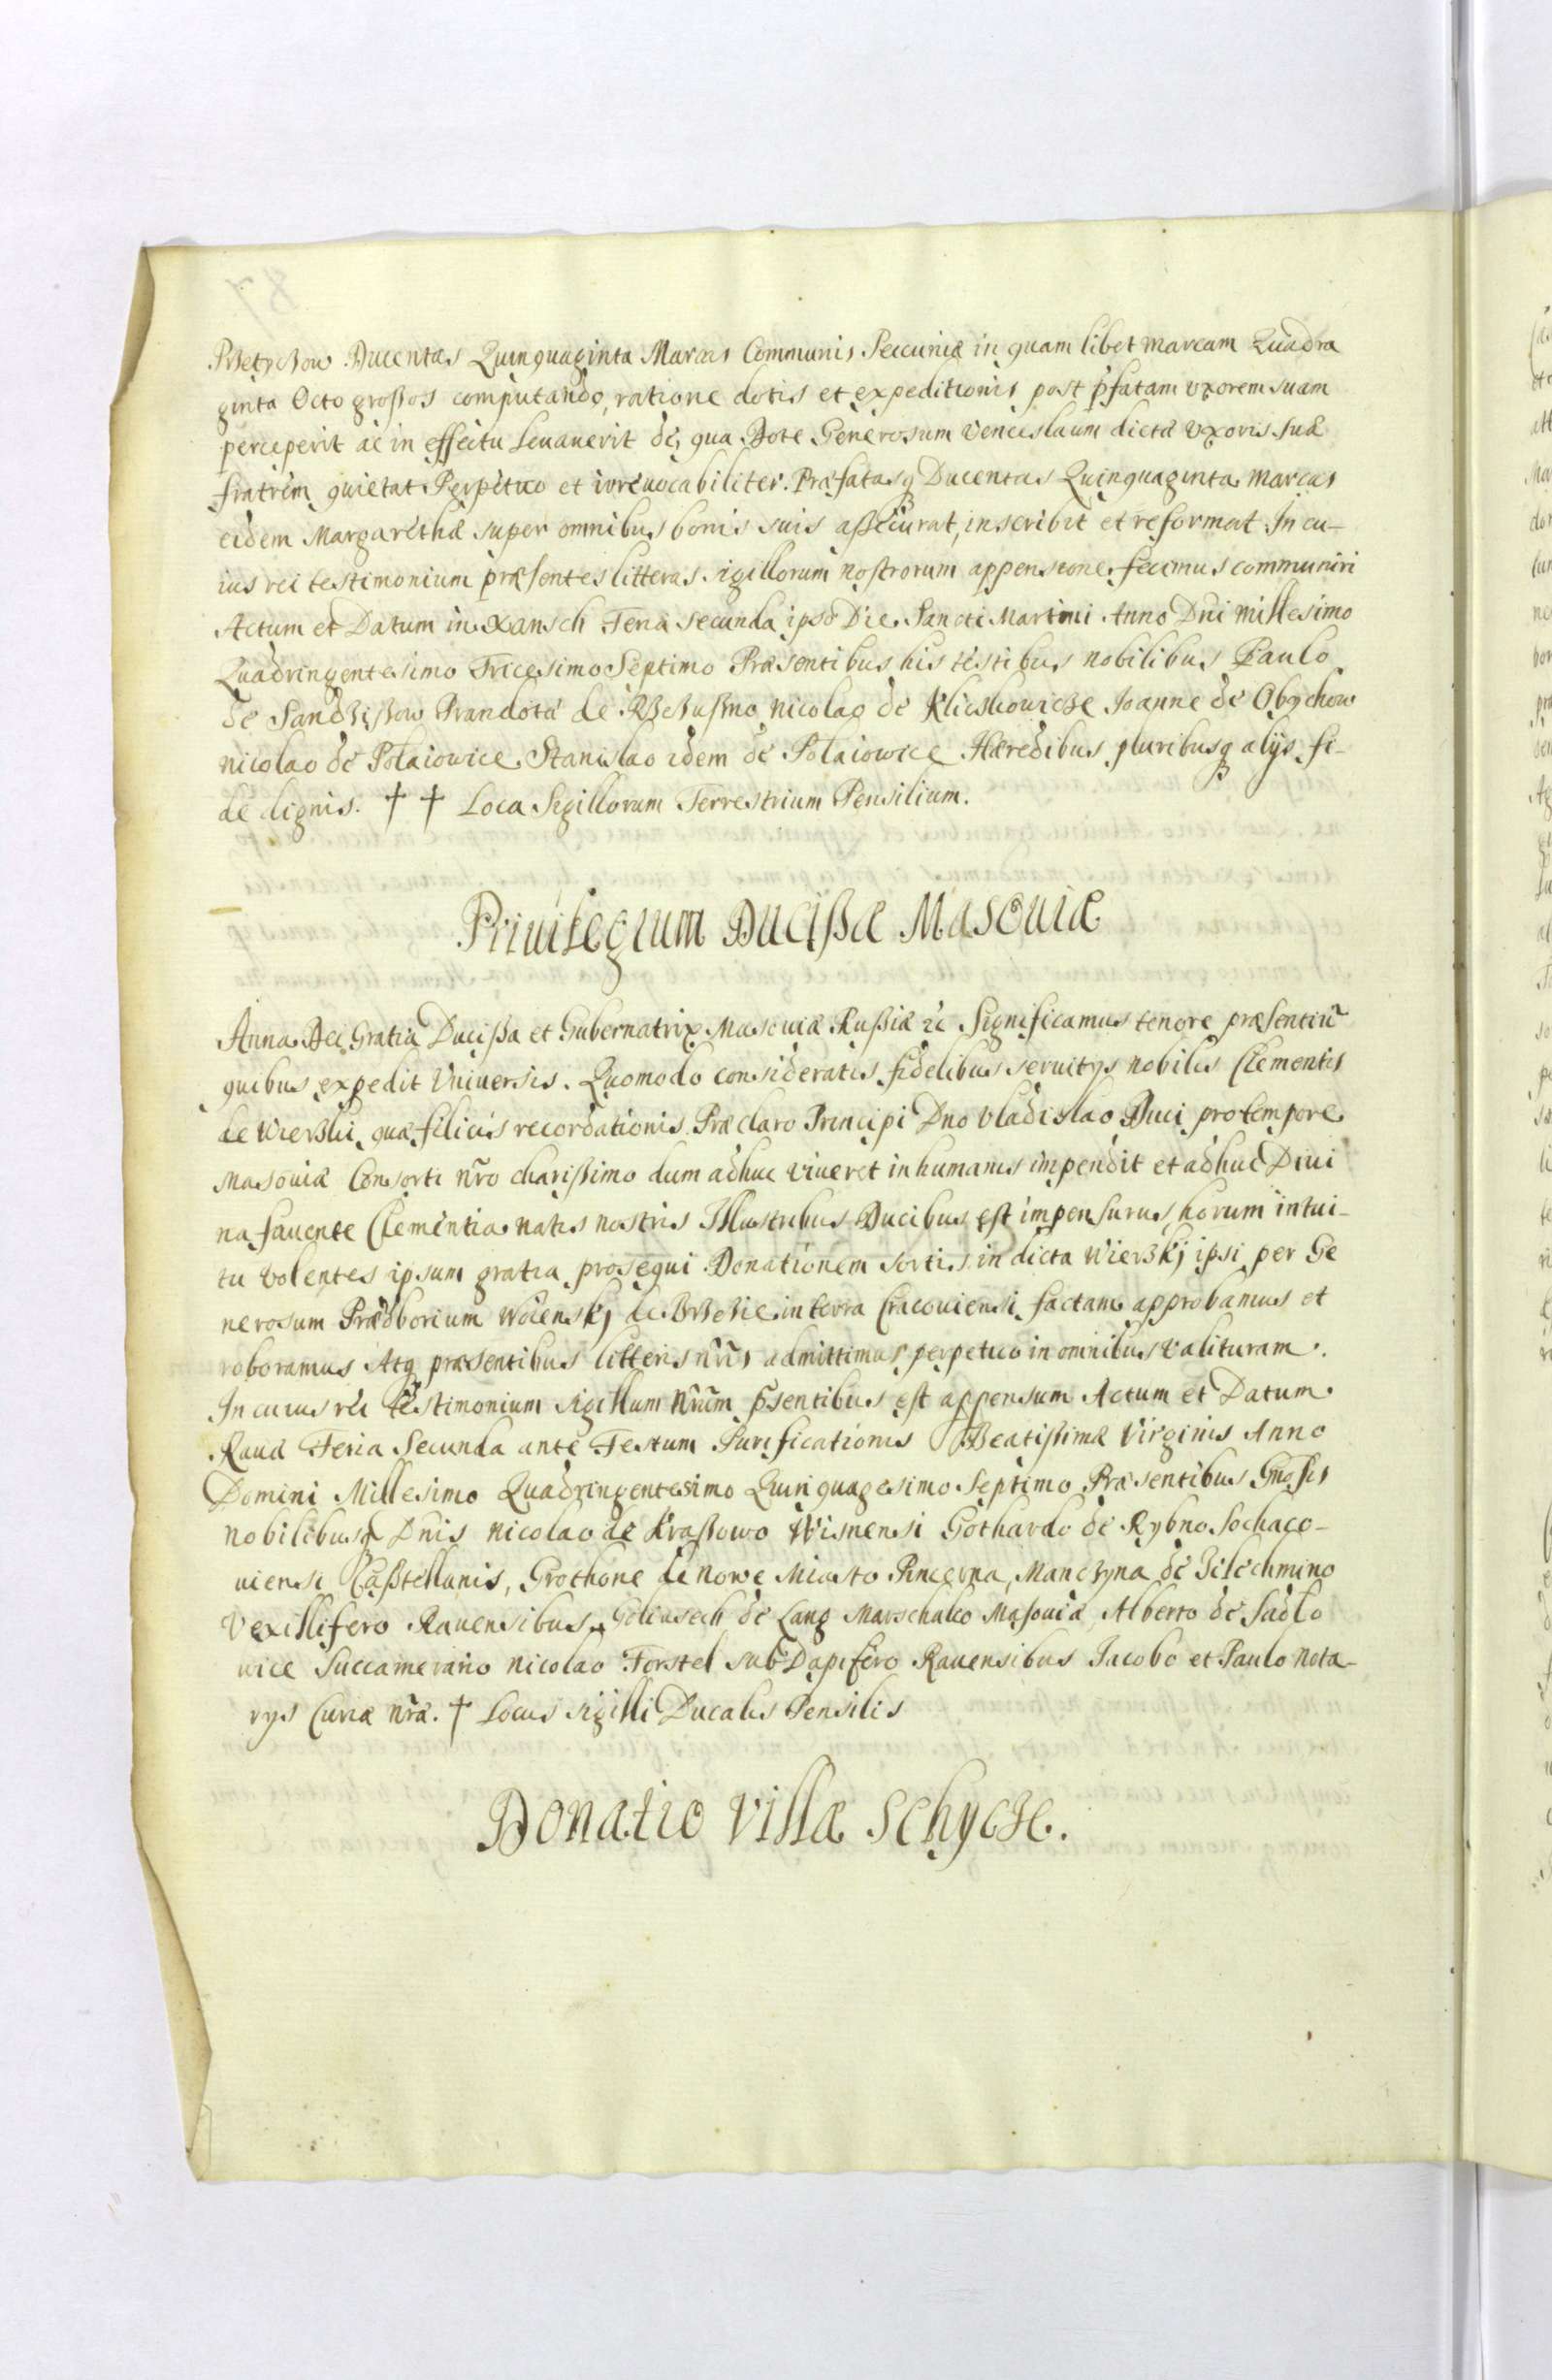 Przetychow Ducentas Quinquaginta Marcas Communis Peccuniæ in quam libet marcam Quadra
ginta Octo grossos computando, ratione dotis et expeditionis post p̄fatam vxorem suam
perceperit ac in effectu Leuauerit de, qua Dote Generosum Venceslaum dictæ vxoris suæ
fratrem quietat Perpetuo et irreuocabiliter. Præfatasq Ducentas Quinquaginta Marcas
eidem Margarethæ super omnibus bonis suis assecurat, inscribit et reformat. In cu-
ius rei testimonium præsentes litteras sigillorum nostrorum appensione fecimus communiri
Actum et Datum in Xansch Feria secunda ipso Die Sancti Martini Anno Dni millesimo
Quadringentesimo Tricesimo Septimo Præsentibus his testibus nobilibus Paulo
de Sandzissow Prandota de Nicolao de Klieskowicze Joanne de Obychow
nicolao de Polaiowice Stanislao idem de Polaiowice Hæredibus pluribusq alijs fi-
de dignis. † † Loca Sigillorum Terrestrium Pensilium.
Priuilegium Ducißæ Masouiæ
Anna Dei Gratia Ducißa et Gubernatrix Masouiæ Rußiæ zc Significamus tenore præsentiū
quibus expedit Vniuersis. Quomodo consideratis fidelibus seruitys nobilis Clementis
de Wierzki, quæ filicis recordationis Præclaro Principi Dno Vladislao Duci pro tempore
Masouiæ Consorti nr̄o charißimo dum adhuc viueret in humanis impendit et adhuc Diui
na fauente Clementia natis nostris Illustribus Ducibus est impensurus, horum intui-
tu volentes ipsum gratia prosequi Donationem sortis in dicta Wierzkj ipsi per Ge
nerosum Prædborium Woienskj de Brzezie in terra Cracouiensi factam approbamus et
roboramus Atq præsentibus litteris nr̄is admittimus perpetuo in omnibus valituram.
In cuius rei testimonium sigillum nr̄um p̄sentibus est appensum Actum et Datum
Rauæ Feria Secunda ante Festum Purificationis Beatißimæ Virginis Anno
Domini Millesimo Quadringentesimo Quinquagesimo Septimo Præsentibus Gnosis
nobilibusq Dnis Nicolao de Kraßowo Wisnensi Gothardo de Rybno Sochaco-
uiensi Caßtellanis, Grothone de Nowe Miasto Pincerna, Manczyna de Zelechmino
Vexillifero Rauensibus, Goliasch de Lang Marschalco Masouiæ, Alberto de Sadlo
wice Succamerario Nicolao Forstel subDapifero Rauensibus Jacobo et Paulo Nota-
rys Curiæ nr̄æ. † Locus sigilli Ducalis Pensilis
Donatio Villæ Schycze.